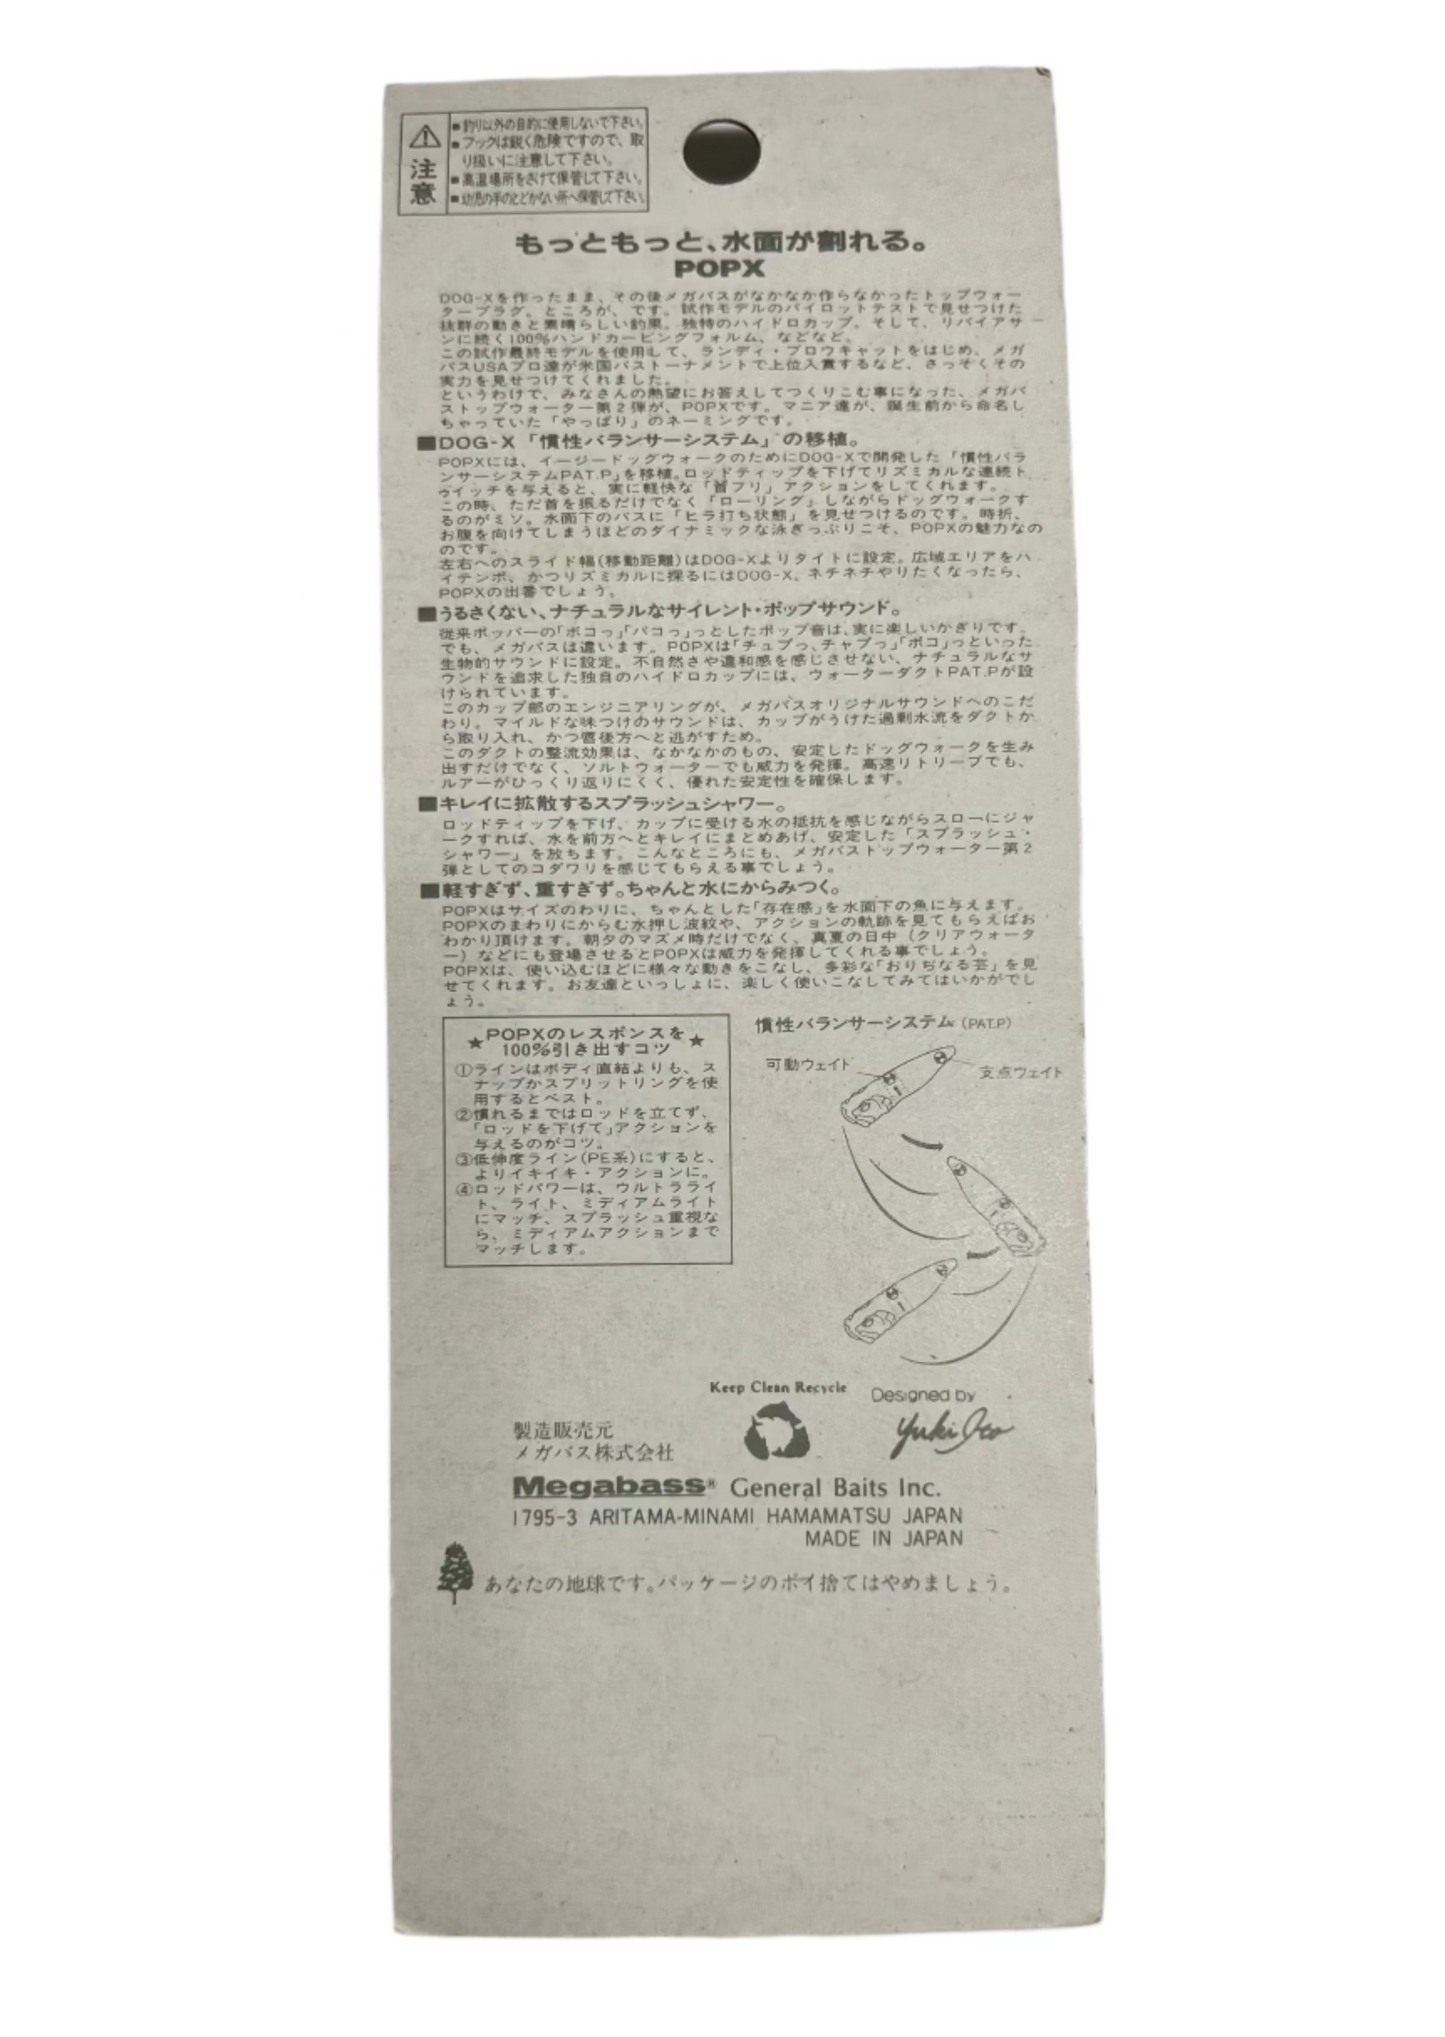 注意
■釣り以外の目的に使用しないで下さい。
■フックは鋭く危険ですので、取
り扱いに注意して下さい。
■高温場所をさけて保管して下さい。
■幼児の手のとどかない所へ保管して下さい。
もっともっと、水面が割れる。
POPX
DOG-Xを作ったまま、その後メガバスがなかなか作らなかったトップウォー
タープラグ。ところが、です。試作モデルのパイロットテストで見せつけた
抜群の動きと素晴らしい釣果。独特のハイドロカップ。そして、リバイアサ
ンに続く100%ハンドカービングフォルム、などなど。
この試作最終モデルを使用して、ランディ・ブロウキャットをはじめ、メガ
バスUSAプロ達が米国バストーナメントで上位入賞するなど、さっそくその
実力を見せつけてくれました。
というわけで、みなさんの熱望にお答えしてつくりこむ事になった、メガバ
ストップウォーター第2弾が、POPXです。マニア達が、誕生前から命名し
ちゃっていた「やっぱり」のネーミングです。
■DOG-X「慣性バランサーシステム」の移植。
POPXには、イージードッグウォークのためにDOG-Xで開発した「慣性バラ
ンサーシステムPAT.P」を移植。ロッドティップを下げてリズミカルな連続ト
ゥイッチを与えると、実に軽快な「首フリ」アクションをしてくれます。
この時、ただ首を振るだけでなく「ローリング」しながらドッグウォークす
るのがミソ。水面下のバスに「ヒラ打ち状態」を見せつけるのです。時折、
お腹を向けてしまうほどのダイナミックな泳ぎっぷりこそ、POPXの魅力なの
のです。
左右へのスライド幅(移動距離)はDOG-Xよりタイトに設定。広域エリアをハ
イテンポ、かつリズミカルに探るにはDOG-X。ネチネチやりたくなったら、
POPXの出番でしょう。
■うるさくない、ナチュラルなサイレント・ポップサウンド。
従来ポッパーの「ボコっ」「パコっ」っとしたポップ音は、実に楽しいかぎりです。
でも、メガバスは違います。POPXは「チュプっ、チャプっ」「ポコ」っといった
生物的サウンドに設定。不自然さや違和感を感じさせない、ナチュラルなサ
ウンドを追求した独自のハイドロカップには、ウォーターダクトPAT.Pが設
けられています。
このカップ部のエンジニアリングが、メガバスオリジナルサウンドへのこだ
わり。マイルドな味つけのサウンドは、カップがうけた過剰水流をダクトか
ら取り入れ、かつ喉後方へと逃がすため。
このダクトの整流効果は、なかなかのもの、安定したドッグウォークを生み
出すだけでなく、ソルトウォーターでも威力を発揮。高速リトリーブでも、
ルアーがひっくり返りにくく、優れた安定性を確保します。
■キレイに拡散するスプラッシュシャワー。
ロッドティップを下げ、カップに受ける水の抵抗を感じながらスローにジャ
ークすれば、水を前方へとキレイにまとめあげ、安定した「スプラッシュ・
シャワー」を放ちます。こんなところにも、メガバストップウォーター第2
弾としてのコダワリを感じてもらえる事でしょう。
■軽すぎず、重すぎず。ちゃんと水にからみつく。
POPXはサイズのわりに、ちゃんとした「存在感」を水面下の魚に与えます。
POPXのまわりにからむ水押し波紋や、アクションの軌跡を見てもらえばお
わかり頂けます。朝夕のマズメ時だけでなく、真夏の日中(クリアウォータ
ー)などにも登場させるとPOPXは威力を発揮してくれる事でしょう。
POPXは、使い込むほどに様々な動きをこなし、多彩な「おりぢなる芸」を見
せてくれます。お友達といっしょに、楽しく使いこなしてみてはいかがでし
ょう。
★POPXのレスポンスを★
100%引き出すコツ
①ラインはボディ直結よりも、ス
ナップかスプリットリングを使
用するとベスト。
②慣れるまではロッドを立てず、
「ロッドを下げて」アクションを
与えるのがコツ。
③低伸度ライン(PE系)にすると、
よりイキイキ・アクションに。
④ロッドパワーは、ウルトラライ
ト、ライト、ミディアムライト
にマッチ、スプラッシュ重視な
ら、ミディアムアクションまで
マッチします。
慣性バランサーシステム(PAT.P)
可動ウェイト
支点ウェイト
Keep Clean Recycle
Designed by
Yuki Ito
製造販売元
メガバス株式会社
Megabass® General Baits Inc.
1795-3 ARITAMA-MINAMI HAMAMATSU JAPAN
MADE IN JAPAN
あなたの地球です。パッケージのポイ捨てはやめましょう。